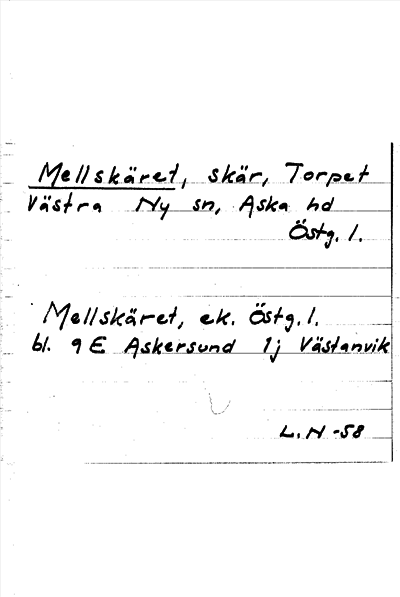 Mellskäret, skär, Torpet
Västra Ny sn, Aska hd
Östg. l.
Mellskäret, ek. Östg. l.
bl. 9 E Askersund 1j Västanvik
L. N -58